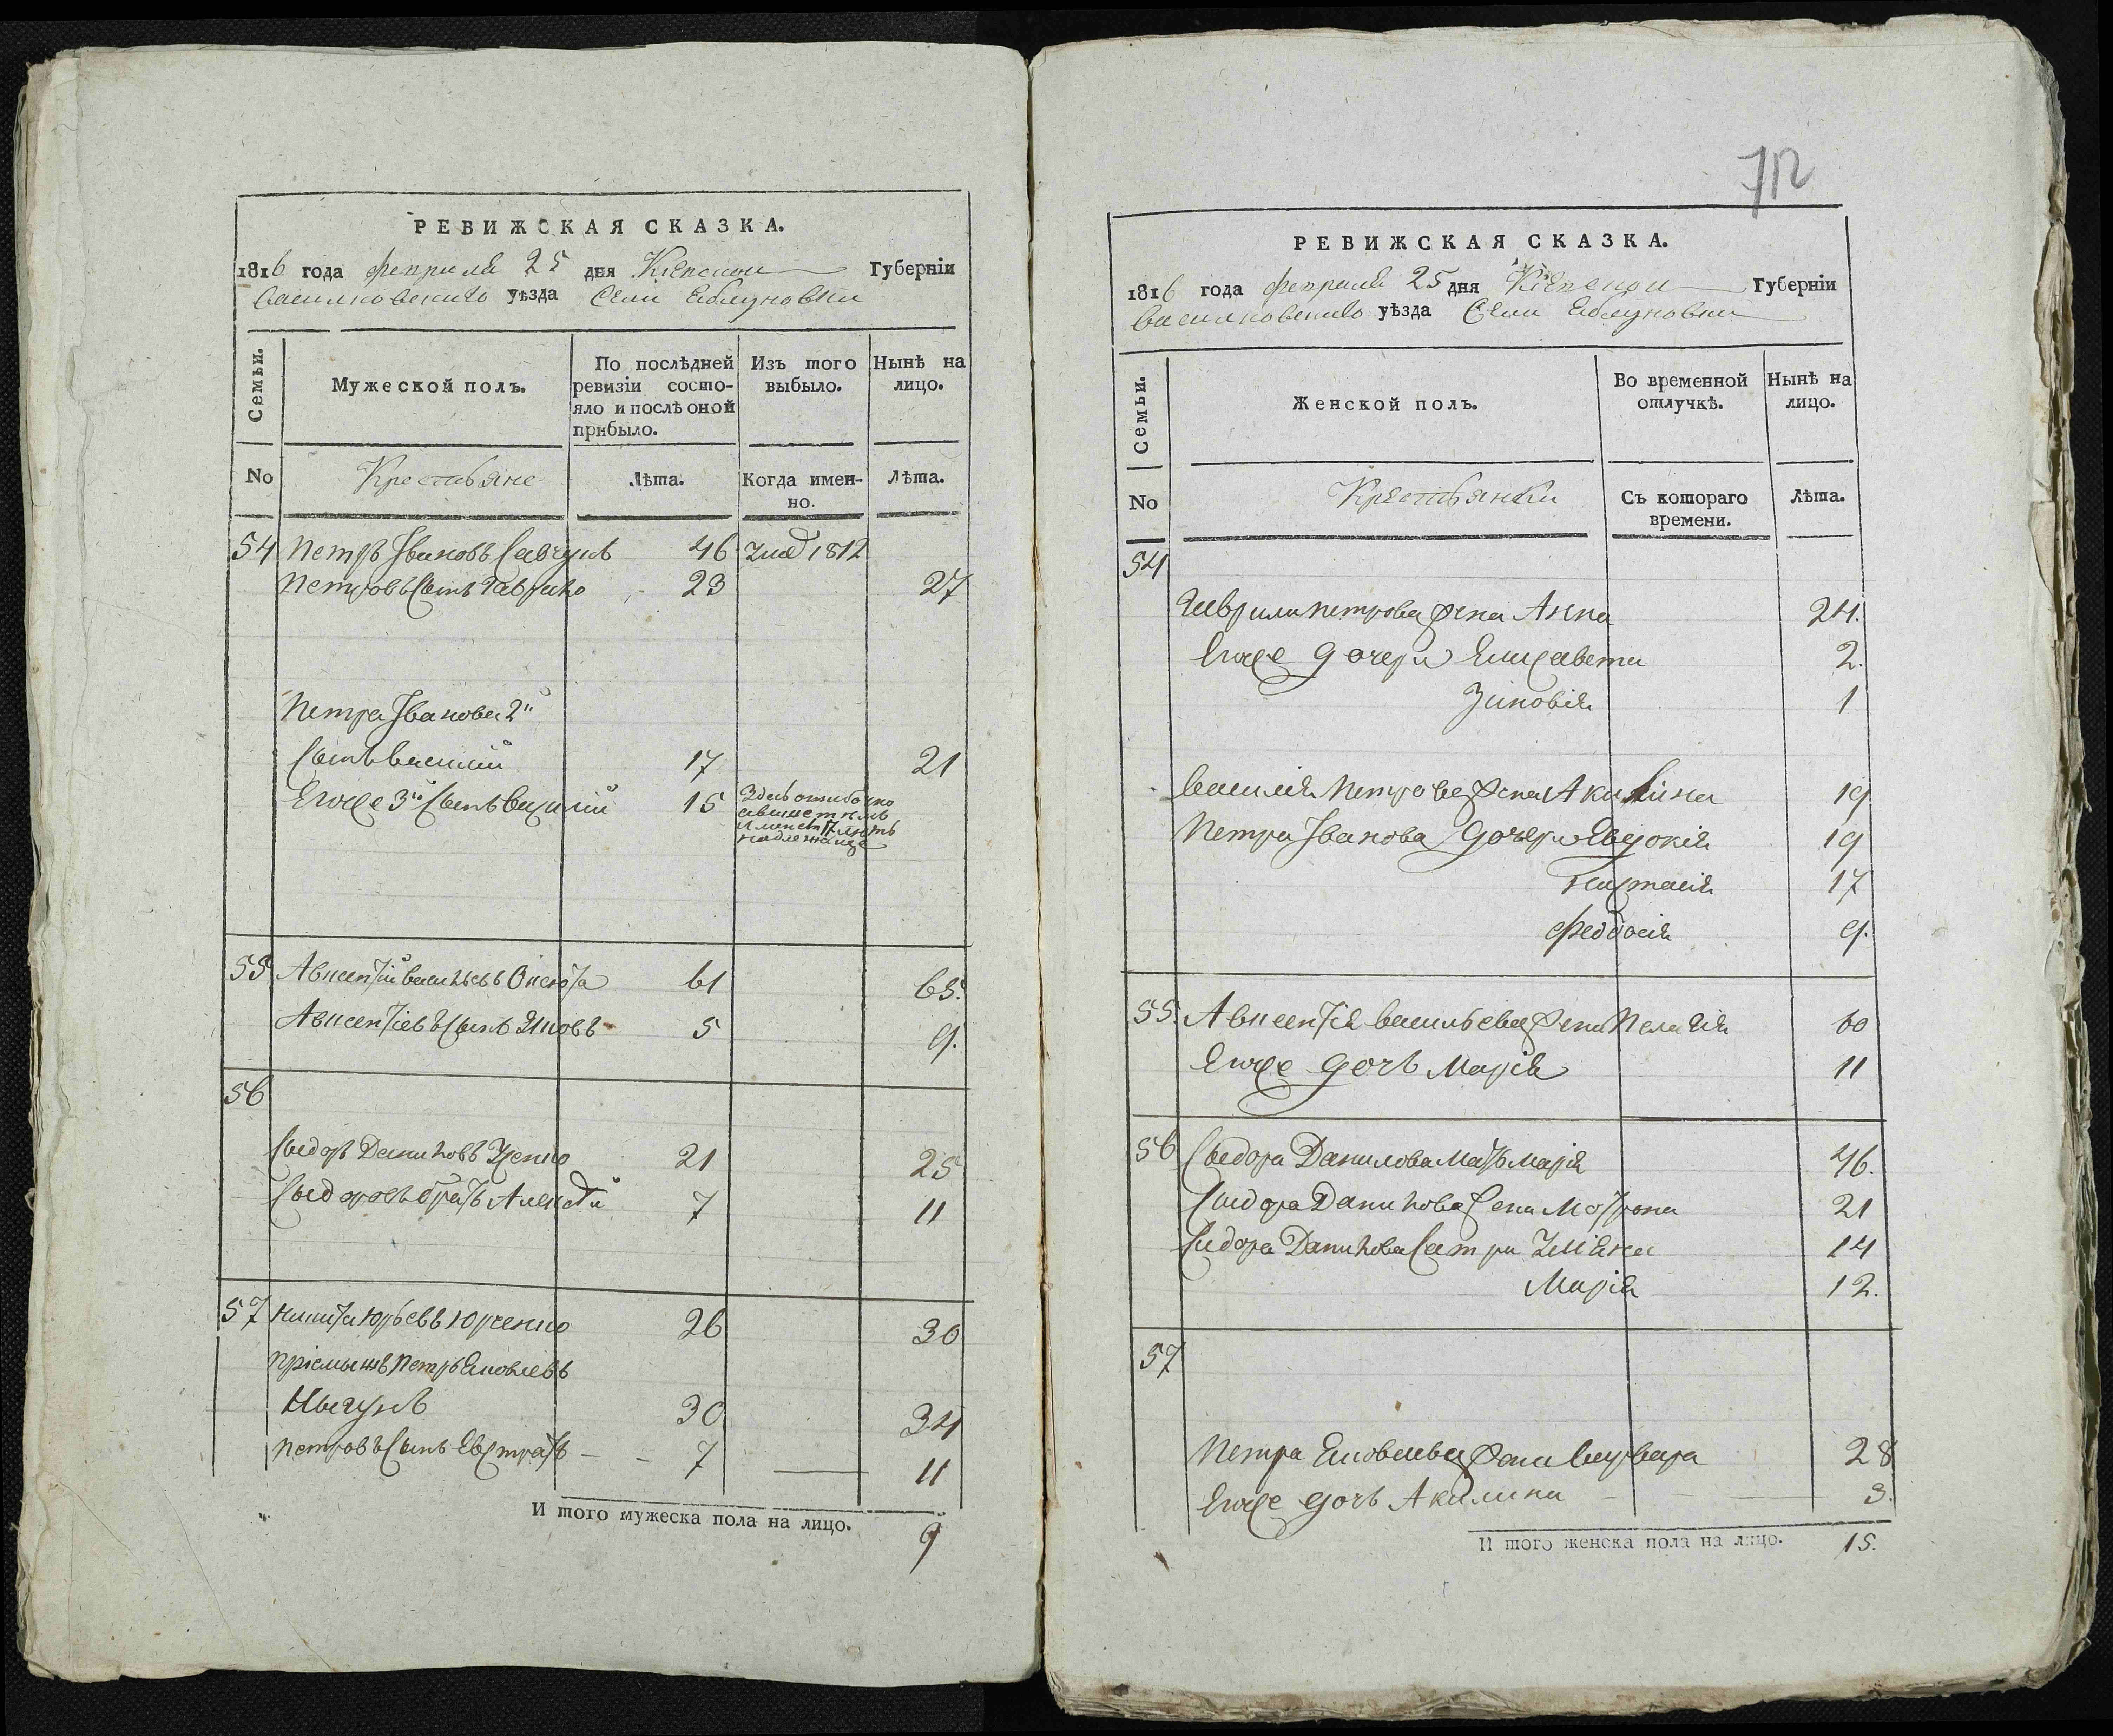 РЕВИЖСКАЯ СКАЗКА.
1816 года февраля 25 дня Кіевской Губерніи
Васильковскаго уѣзда Села Яблуновки
Семьи.
Мужеской полъ.
По послѣдней ревизіи состо-
яло и послѣ оной
прибыло.
Изъ того
выбыло.
Нынѣ на
лицо.
No Крестьяне Лѣта. Когда имен-
но. Лѣта.
54 Петръ Ивановъ Савчукъ 46 1812
Петровъ Сынъ Гаврило 23 27
Петра Иванова 2й
Сынъ Василій 17 21
Егоже 3й Сынъ Василій 15
55 Авксентій Васильевъ 61 65.
Авксентіевъ Сынъ Яковъ 5 9.
56
Сидоръ Даниловъ 21 25
Сидоровъ братъ Алексѣй 7 11
57 Никита Юрьевъ Юрченко 26 30
Пріемышъ Петръ Яковлевъ
30 34
Петровъ Сынъ Евстратъ 7 11
И того мужеска пола на лицо. 9
712
РЕВИЖСКАЯ СКАЗКА.
1816 года февраля 25 дня Кіевской Губерніи
Васильковскаго уѣзда Села Яблуновки
Семьи.
Женской полъ.
Во временной
отлучкѣ.
Нынѣ на
лицо.
No Крестьянки Съ котораго
времени. Лѣта.
54
Гаврила Петрова жена Анна 24.
Егоже дочери Елисавета 2.
Зиновія 1
Василія Петрова жена Акилина 19
Петра Иванова дочери Евдокія 19
Настасія 17
Феодосія 9.
55. Авксентія Васильева жена Пелагія 60
Егоже дочь Марія 11
56 Сидора Данилова мать Марія 46.
Сидора Данилова жена Мотрона 21
Сидора Данилова Сестри Уліяна 14
Марія 12.
57
Петра Яковлева жена Варвара 28
Егоже дочь Акилина 3.
И того женска пола на лицо. 15.